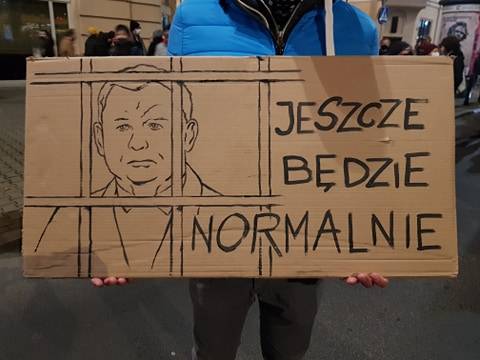 JESZCZE
BĘDZIE
NORMALNIE